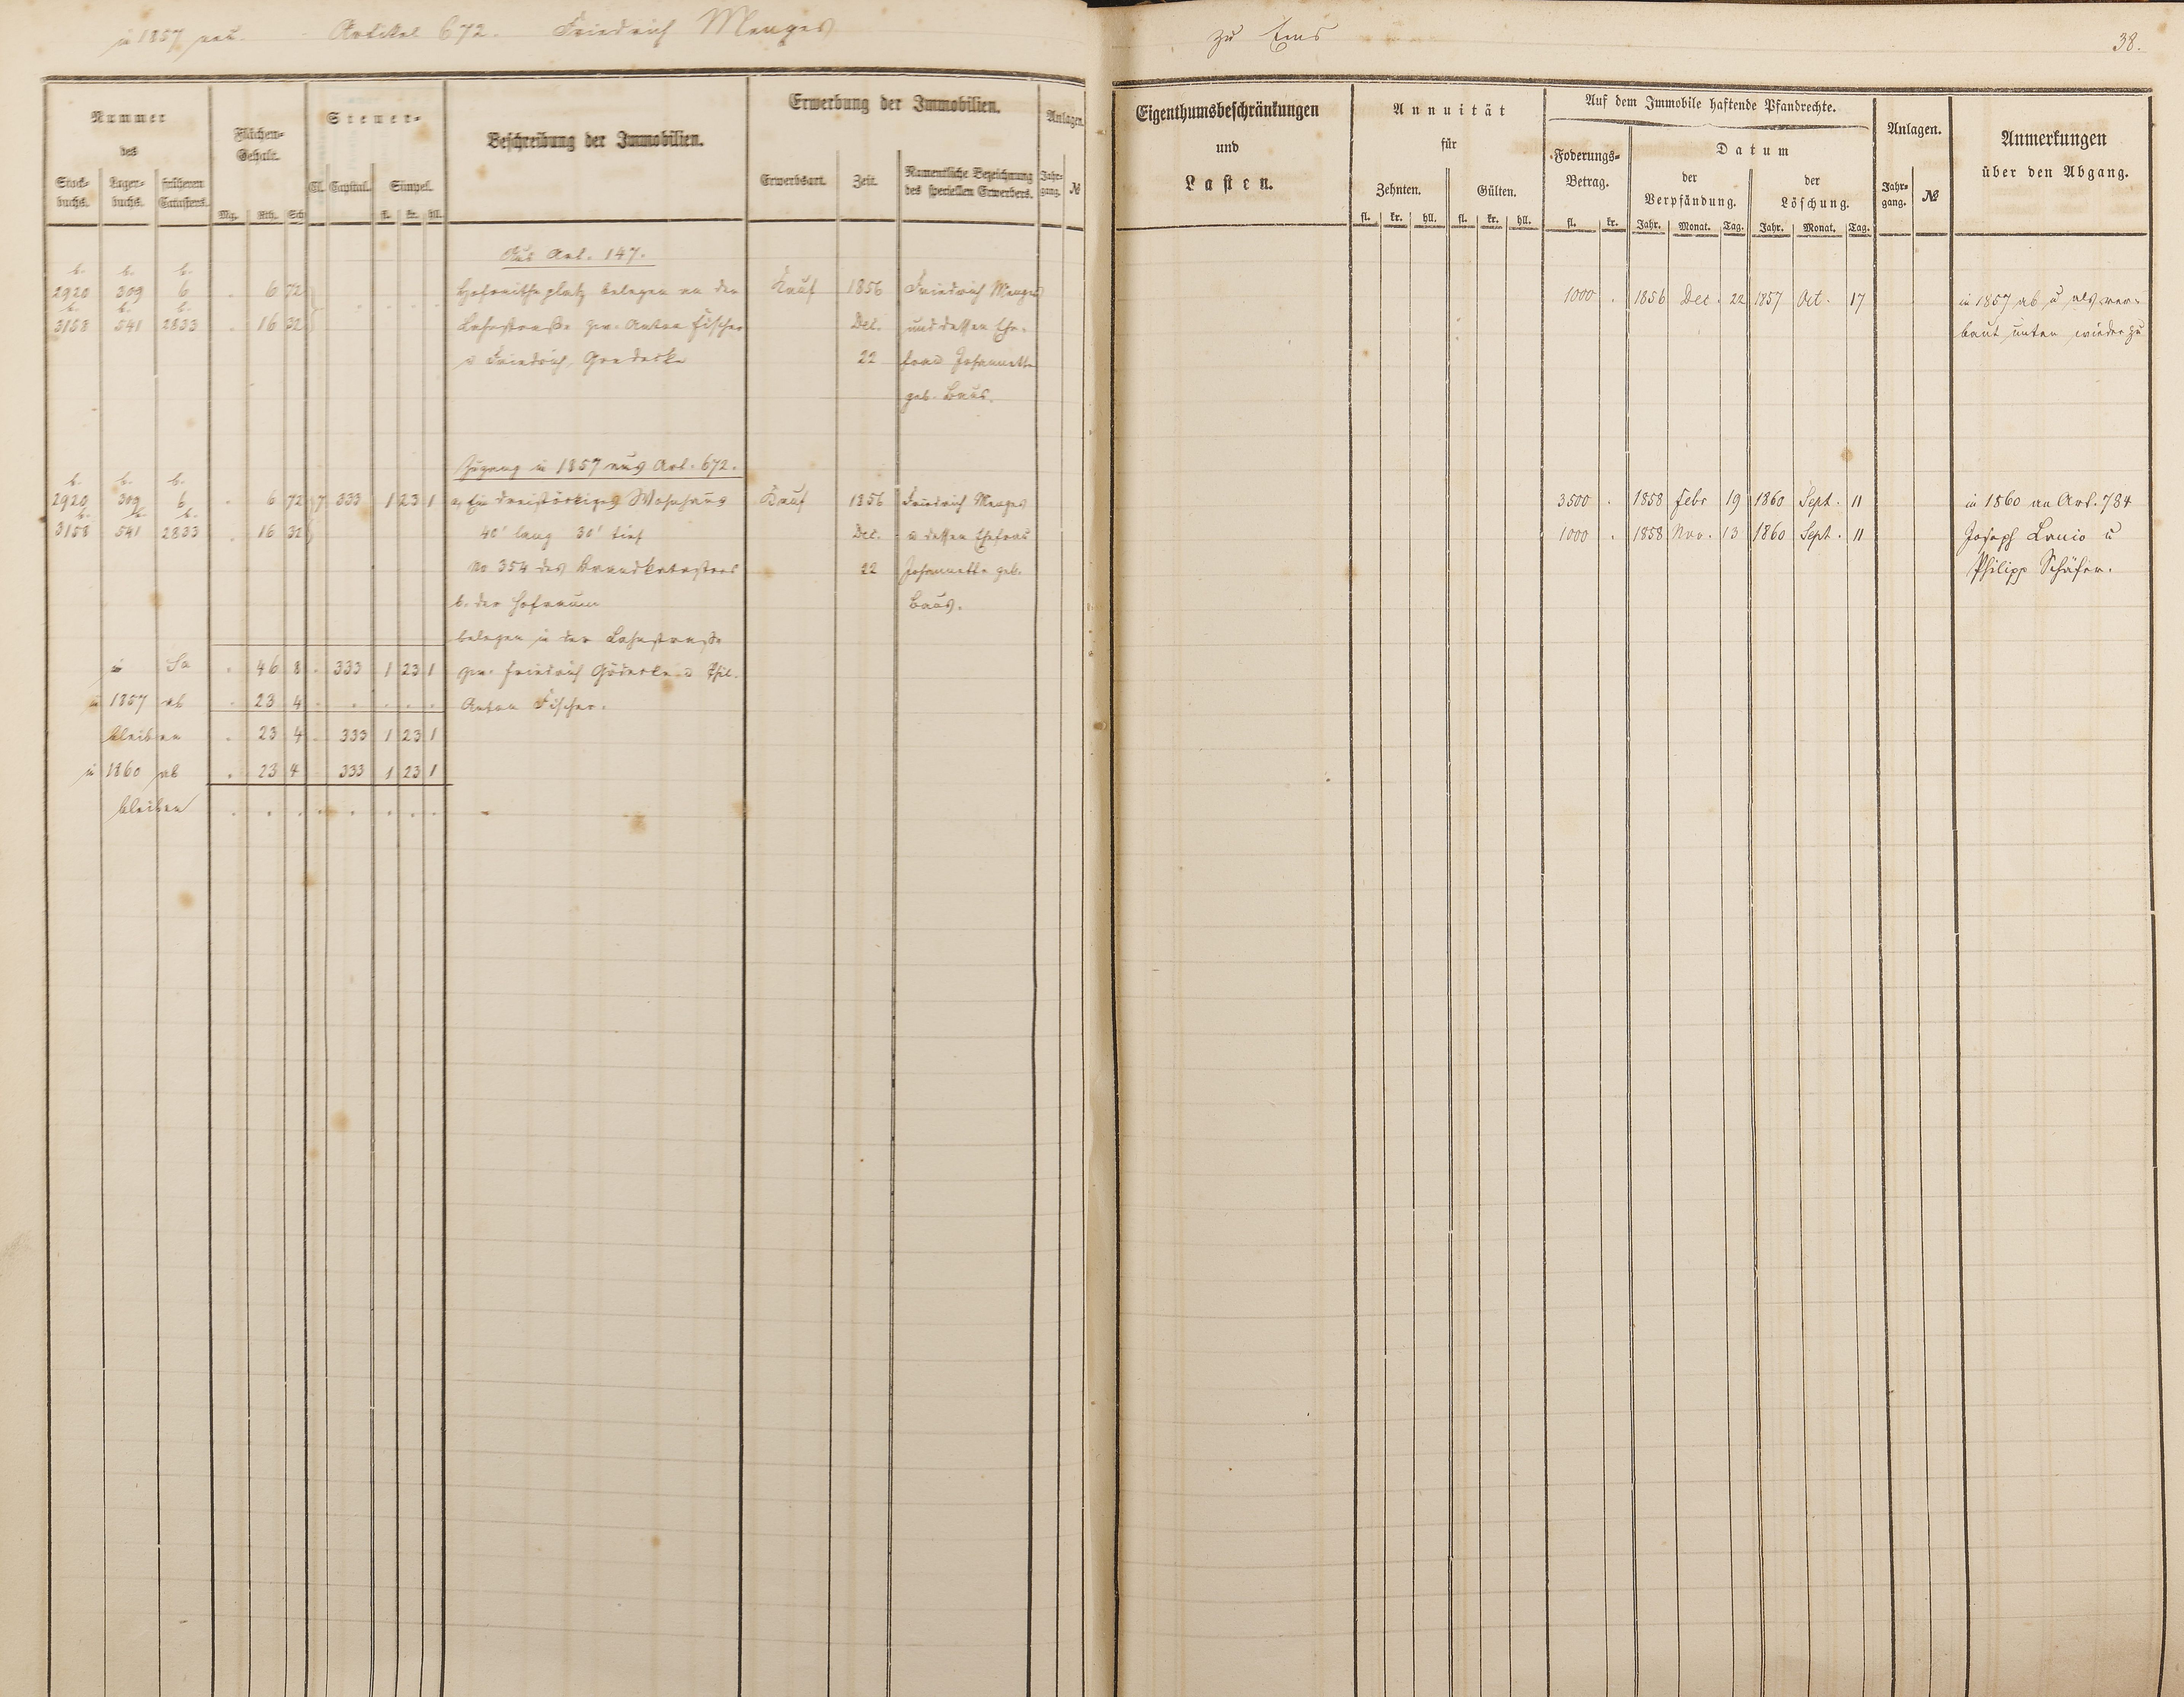 in 1857 neu. Artikel 672. Friedrich Menges zu Ems 38.
Nummer des
Stock-buchs. Lager-buchs. früheren Catasters.
Flächen-Gehalt.
Mg. Rth. Sch.
Steuer-
Cl. Capital. Simpel.
fl. kr. hll.
Beschreibung der Immobilien.
Erwerbung der Immobilien.
Erwerbsart. Zeit. Namentliche Bezeichnung des speciellen Erwerbers.
Anlagen.
Jahr-gang. №
Eigenthumsbeschränkungen
und
Lasten.
Annuität
für
Zehnten. Gülten.
fl. kr. hll. fl. kr. hll.
Auf dem Immobile haftende Pfandrechte.
Foderungs-Betrag.
fl. kr.
Datum
der Verpfändung. der Löschung.
Jahr. Monat. Tag. Jahr. Monat. Tag.
Anlagen.
Jahr-gang. №
Anmerkungen
über den Abgang.
Aus Art. 147.
b. b. b.
2920 309 6 . 6 72 Hofraitheplatz belegen an der Kauf 1856 Friedrich Menges 1000 . 1856 Dec. 22 1857 Oct. 17 in 1857 ab u als ver-
b. b. b.
3158 541 2833 . 16 32 Lahnstraße zw. Anton Fischer Dec. und dessen Ehe- baut unten wieder zu
u Friedrich Goedecke 22 frau Johannette
geb. Baus.
Zugang in 1857 aus Art. 672.
b. b. b.
2920 309 6 . 6 72 7 333 1 23 1 a, Ein dreistöckiges Wohnhaus Kauf 1856 Friedrich Menges 3500 . 1858 Febr 19 1860 Sept. 11 in 1860 an Art. 784
b. b. b.
3158 541 2833 . 16 32 40' lang 30' tief Dec. u dessen Ehefrau 1000 . 1858 Nov. 13 1860 Sept. 11 Joseph Lanio u
No 354 des Brandkatasters 22 Johannette geb. Philipp Schäfer.
b. der Hofraum Baus.
belegen in der Lahnstraße
in Sa . 46 8 . 333 1 23 1 zw. Friedrich Gödecke u Phil.
in 1857 ab . 23 4 . . . . . Anton Fischer.
bleiben . 23 4 . 333 1 23 1
in 1860 ab . 23 4 333 1 23 1
bleiben . . . . . . . .